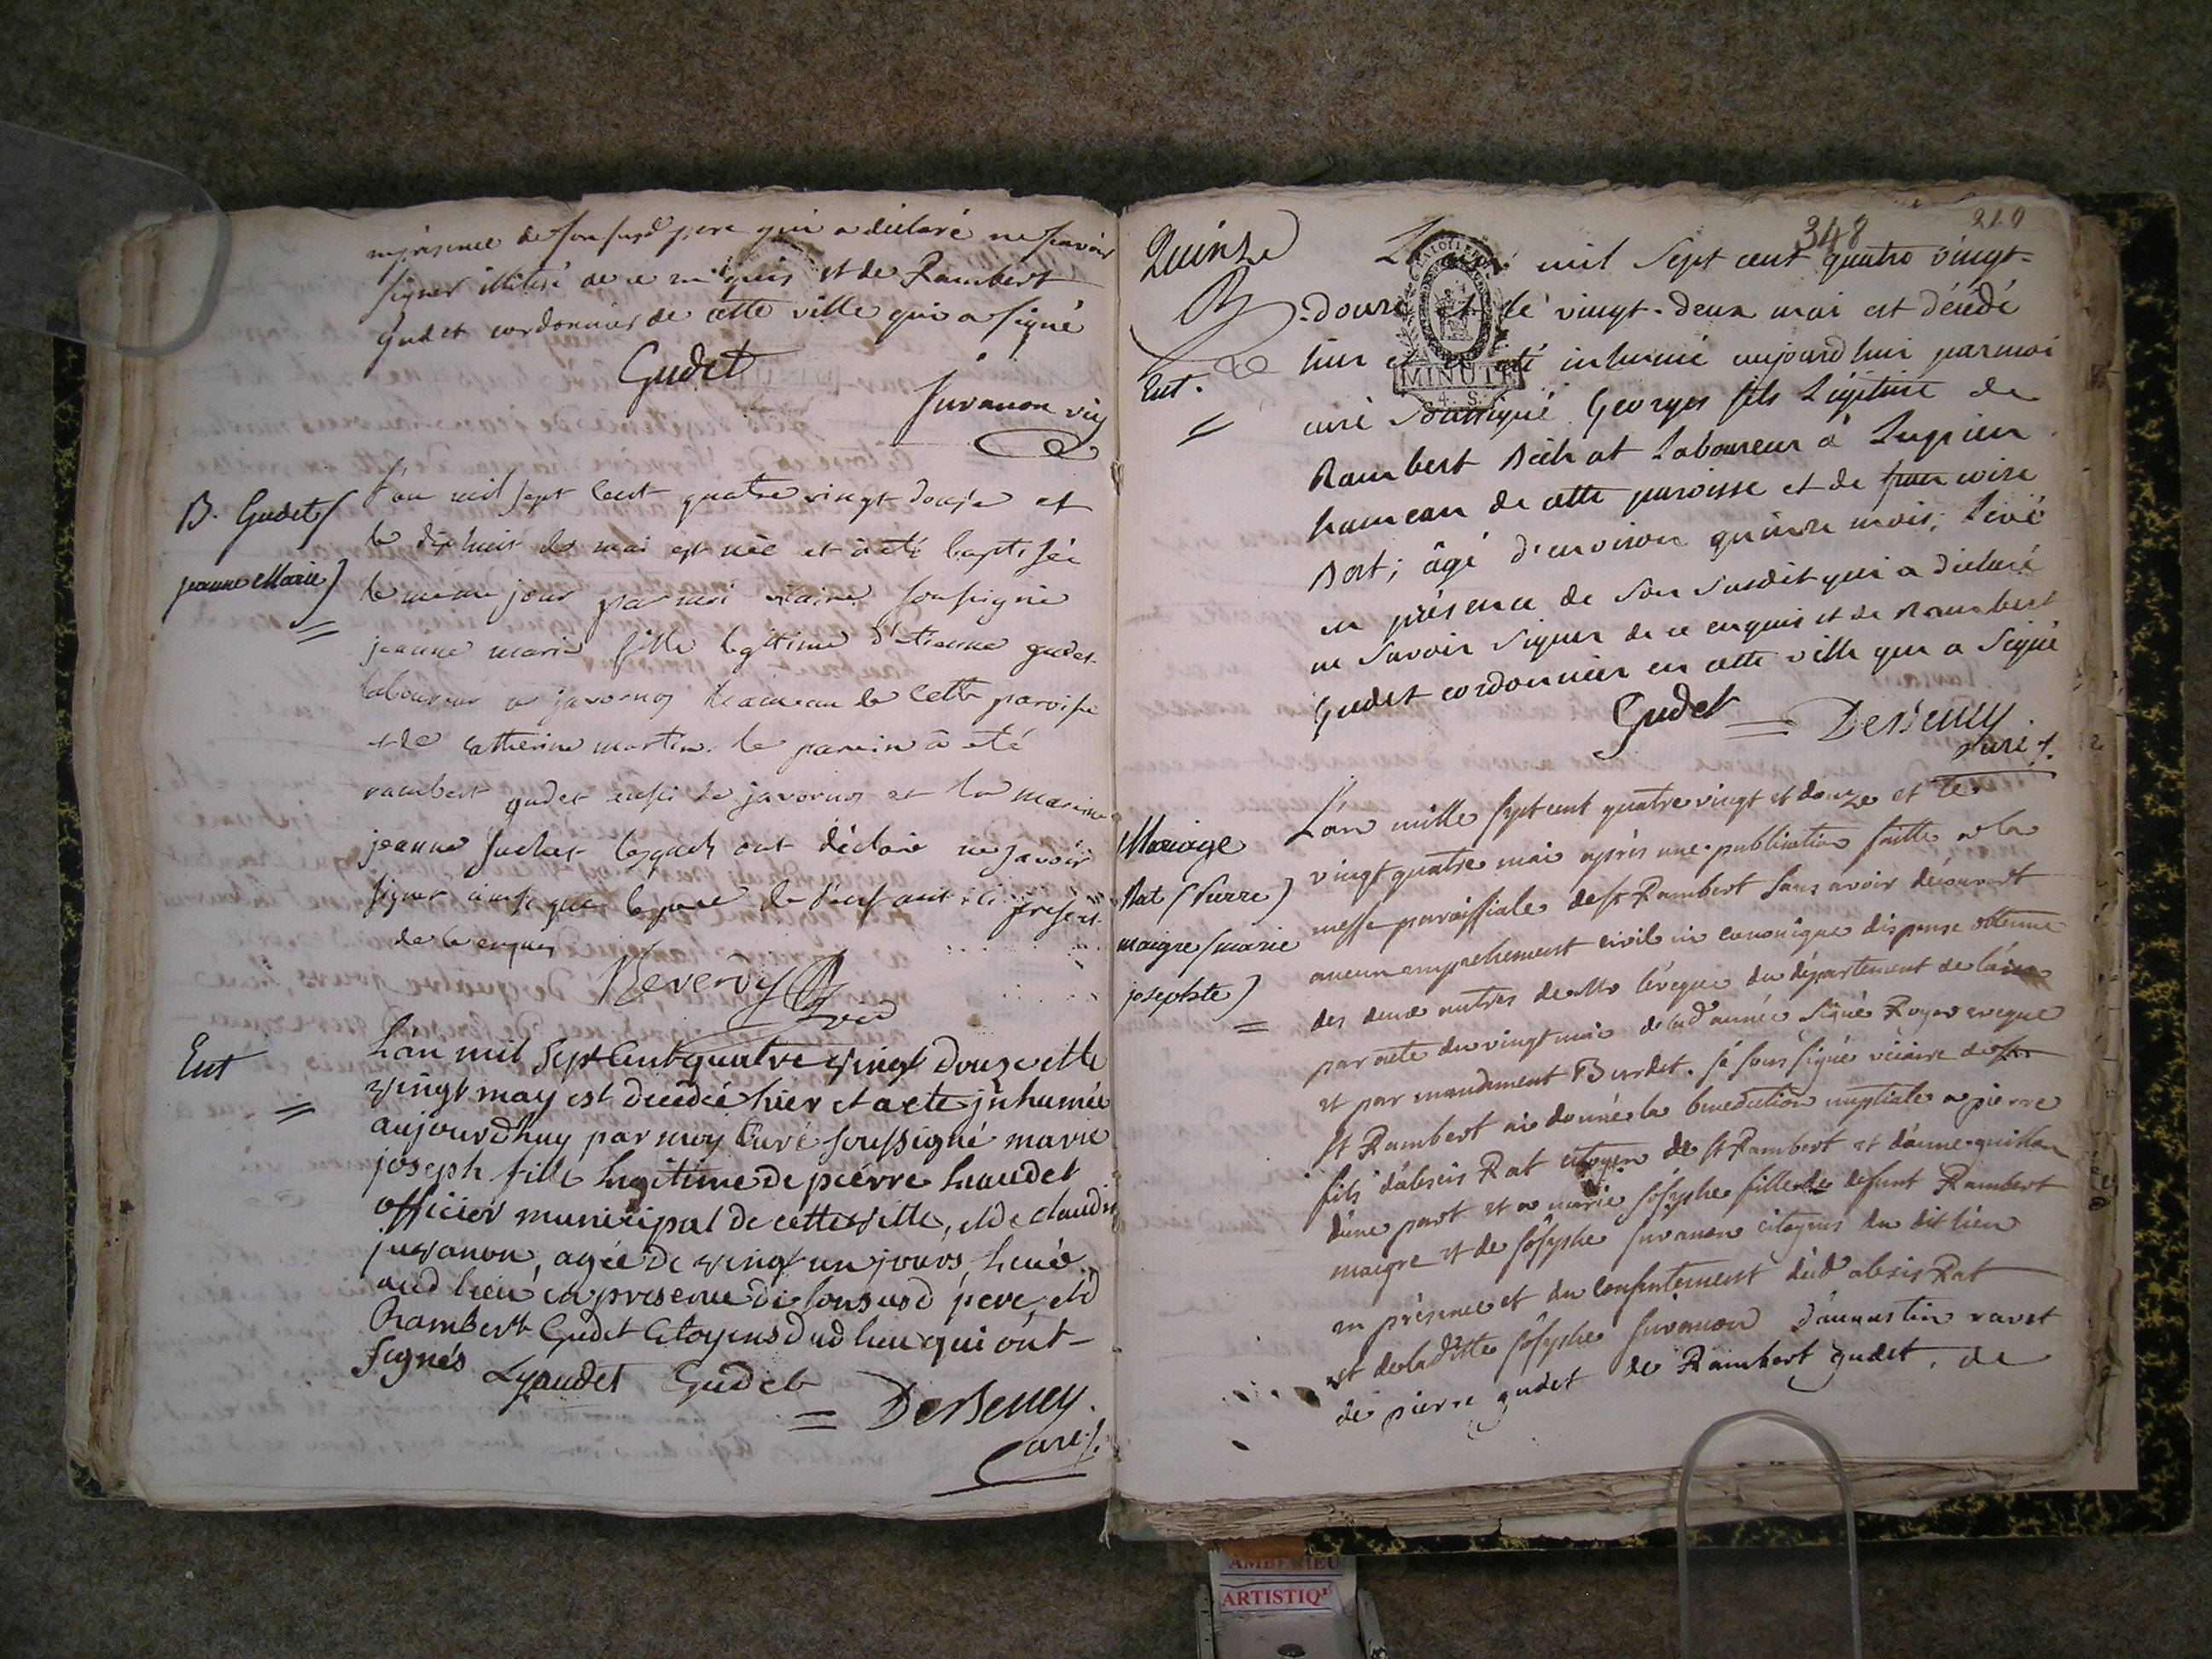 en présence de son susd père qui a déclaré ne scavoir
signer illiteré de ce enquis et de Rambert
Gudet cordonnier de cette ville qui a signé
Gudet
Juvanon vic
B. Gudet (
jeanne Marie)
L'an mil sept cent quatre vingt douze et
le dix huit de mai est née et a été baptisée
le même jour par moi vicaire soussigné
jeanne marie fille legitime d'etienne gudet
laboureur a javornoz hameau de cette paroisse
et de catherine martin. le parrein a été
rambert gudet aussi de javornoz et la mareine
jeanne suchet lesquels ont déclaré ne savoir
signer ainsi que le pere de l'enfant ici présent
de ce enquis
Reverdy
Ent
Lan mil sept Cent quatre vingt douze et le
vingt may est decedée hier et a ete jnhumée
aujourdhuy par moy Curé soussigné marie
joseph fille legitime de piérre liaudet
officier municipal de cette ville, et de claudine
juvanon, agée de vingt un jours, levée
aud lieu en presence de son susd pere, et d
Rambert Gudet Citoyens dud lieu qui ont
signés Lyaudet Gudet
= DerBeney.
Curé
Quinze
348
Ent.
L'an mil sept cent quatre vingt-
-douze et le vingt-deux mai est décédé
hier et a été inhumé aujourdhui par moi
MINUTE
4. S.
curé soussigné Georges fils légitime de
Rambert laboureur à Lupieu
hameau de cette paroisse et de francoise
Bort; âgé d'environ quinze mois; levé
en présence de son susdit qui a déclaré
ne savoir signer de ce enquis et de Rambert
Gudet cordonnier en cette ville qui a signé
Gudet = DerBeney.
curé
Mariage
Rat (Pierre)
maigre (marie
josephte)
L'an mille sept cent quatre vingt et douze et le
vingt quatre mai après une publication faitte a la
messe paroissiale de st Rambert sans avoir découvert
aucun empechement civil ni canonique dispense obtenue
des deux autres de Mr lévéque du département de lain
par acte du vingt mai de lad année signé Royer eveque
et par mandement Burdet. je sous signé vicaire de
st Rambert ai donné la benediction nuptiale a pierre
fils d'alexis Rat citoyen de st Rambert et d'anne guillon
d'une part et a marie josephe fille de defunt Rambert
maigre et de josephe juvanon citoyens du dit lieu
en présence et du consentement dud alexis Rat
et de laditte josephe juvanon d'augustin ravet
de pierre gudet de Rambert gudet, de
ARTISTIQ